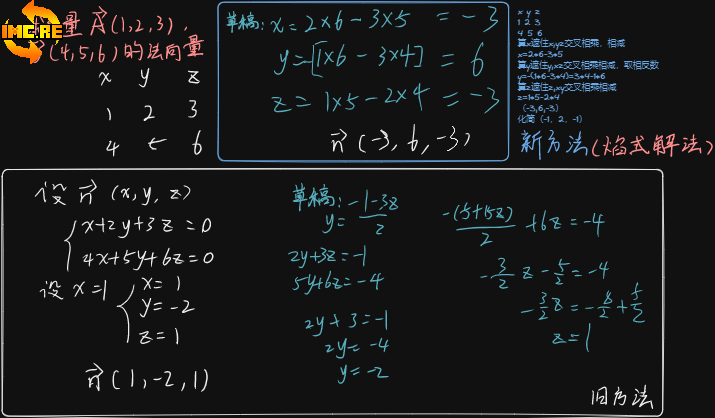 IMCRE
量 A(1,2,3),
(4,5,6)的法向量
x y z
1 2 3
4 5 6
草稿: x=2×6-3×5 =-3
y=-[1×6-3×4]=6
z=1×5-2×4 =-3
n(-3,6,-3)
x y z
1 2 3
4 5 6
算x遮住x,yz交叉相乘,相减
x=2*6-3*5
算y遮住y,xz交叉相乘相减,取相反数
y=-(1*6-3*4)=3*4-1*6
算z遮住z,xy交叉相乘相减
z=1*5-2*4
(-3,6,-3)
化简(-1, 2, -1)
新方法(焰式解法)
设 n(x,y,z)
x+2y+3z=0
4x+5y+6z=0
设x=1
x=1
y=-2
z=1
n(1,-2,1)
草稿:
y=-1-3z/2
2y+3z=-1
5y+6z=-4
2y+3=-1
2y=-4
y=-2
-(5+15z)/2+6z=-4
-3/2z-5/2=-4
-3/2z=-8/2+5/2
z=1
旧方法